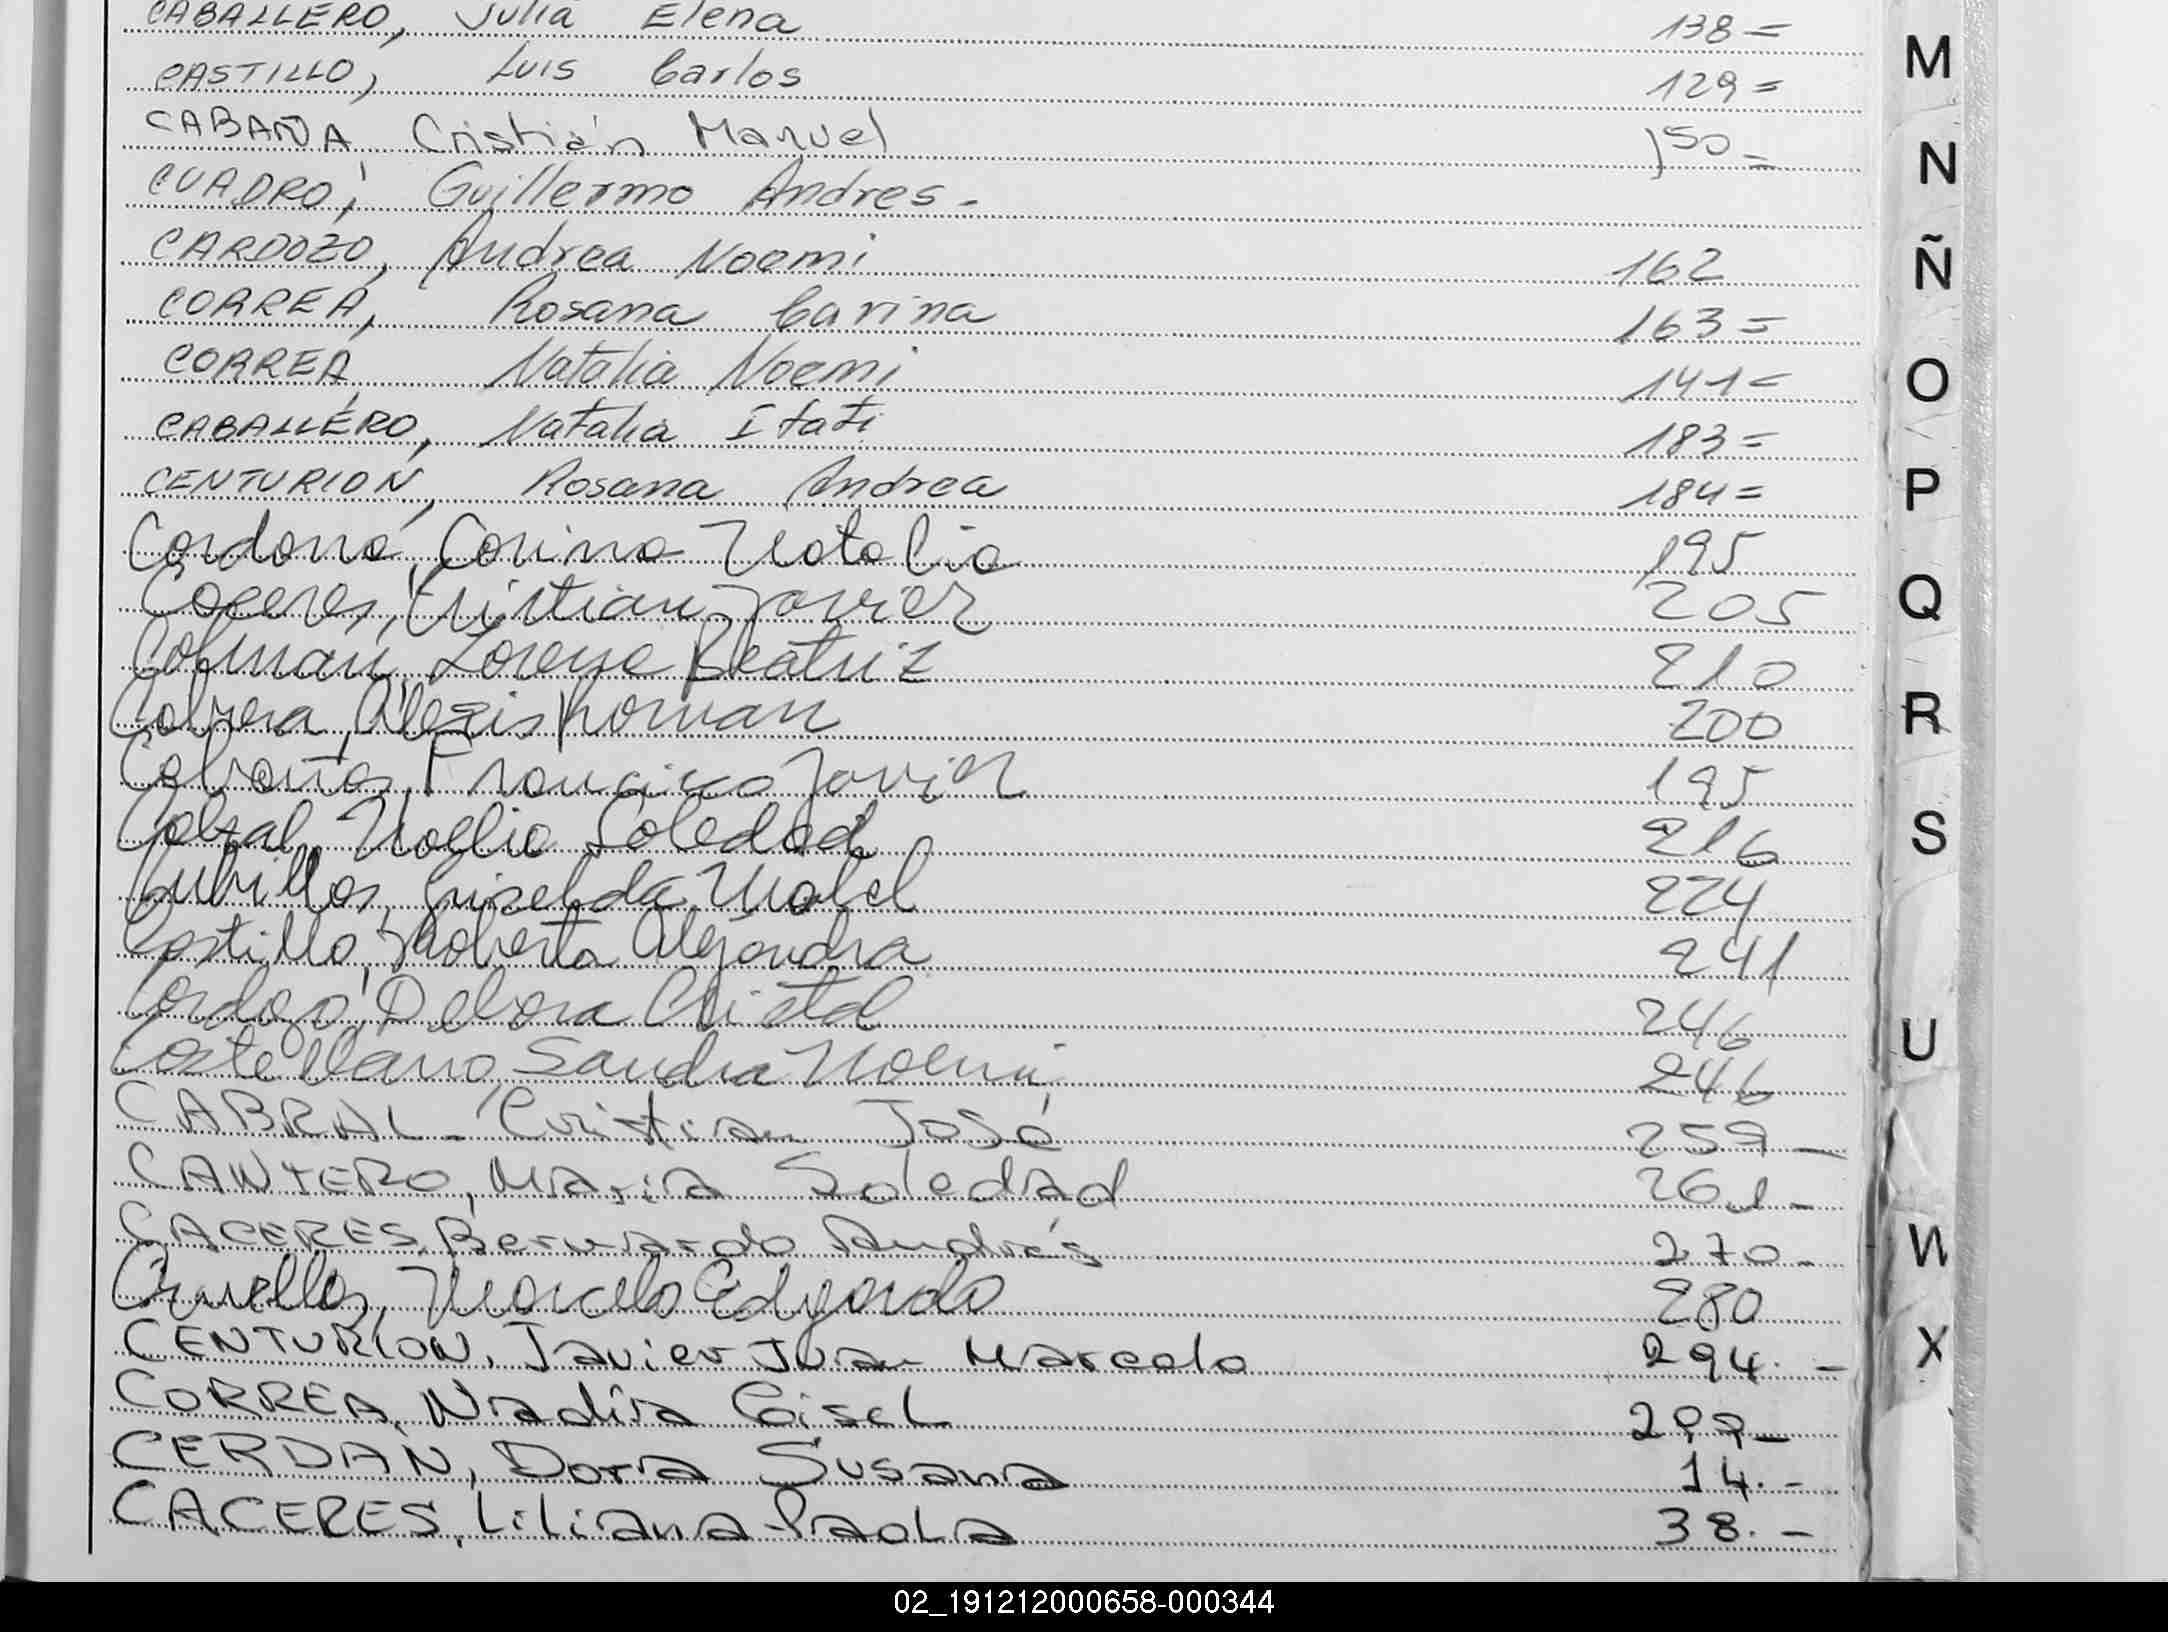 CABALLERO, Julia Elena 138=
CASTILLO, Luis Carlos 129=
CABAÑA, Cristián Manuel 150=
CUADRO, Guillermo Andres-
CARDOZO, Andrea Noemi 162
CORREA, Rosana Carina 163=
CORREA, Natalia Noemi 141=
CABALLERO, Natalia Itati 183=
CENTURION, Rosana Andrea 184=
Cardona, Corina Natalia 195
Caceres, Cristian Javier 205
Colman, Lorena Beatriz 210
Cabrera, Alexis Roman 200
Cabañas, Francisco Javier 195
Cabral, Noelia Soledad 216
Cubillos, Griselda Mabel 224
Castillo, Roberta Alejandra 241
Cardozo, Debora Cristel 246
Castellano, Sandra Noemi 246
CABRAL - Cristian José 259-
CANTERO, Maria Soledad 261-
CACERES, Bernardo Andrés 270-
Marcelo Edgardo 280
CENTURION, Javier Juan Marcelo 294.-
CORREA, Nadia Gisel 299-
CERDAN, Dora Susana 14.-
CACERES, Liliana Paola 38.-
M
N
Ñ
O
P
Q
R
S
U
W
X
02_191212000658-000344